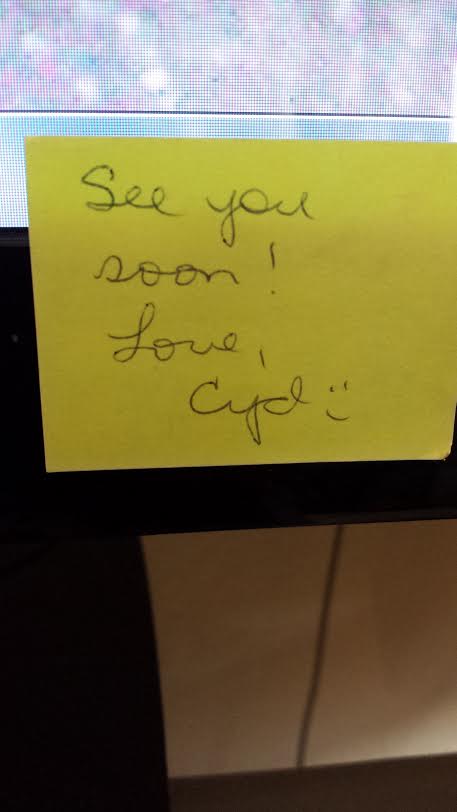 See you
soon!
Love,
Cyd :)